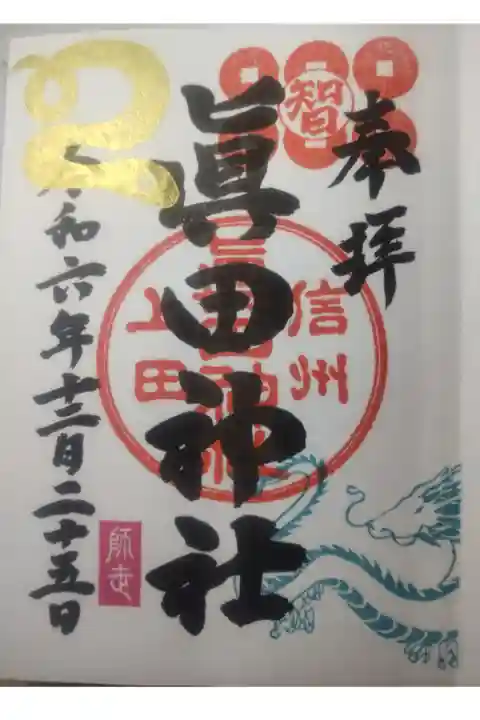 奉拝
智
眞田神社
信州
上田
眞田神社
令和六年十二月二十五日
師走